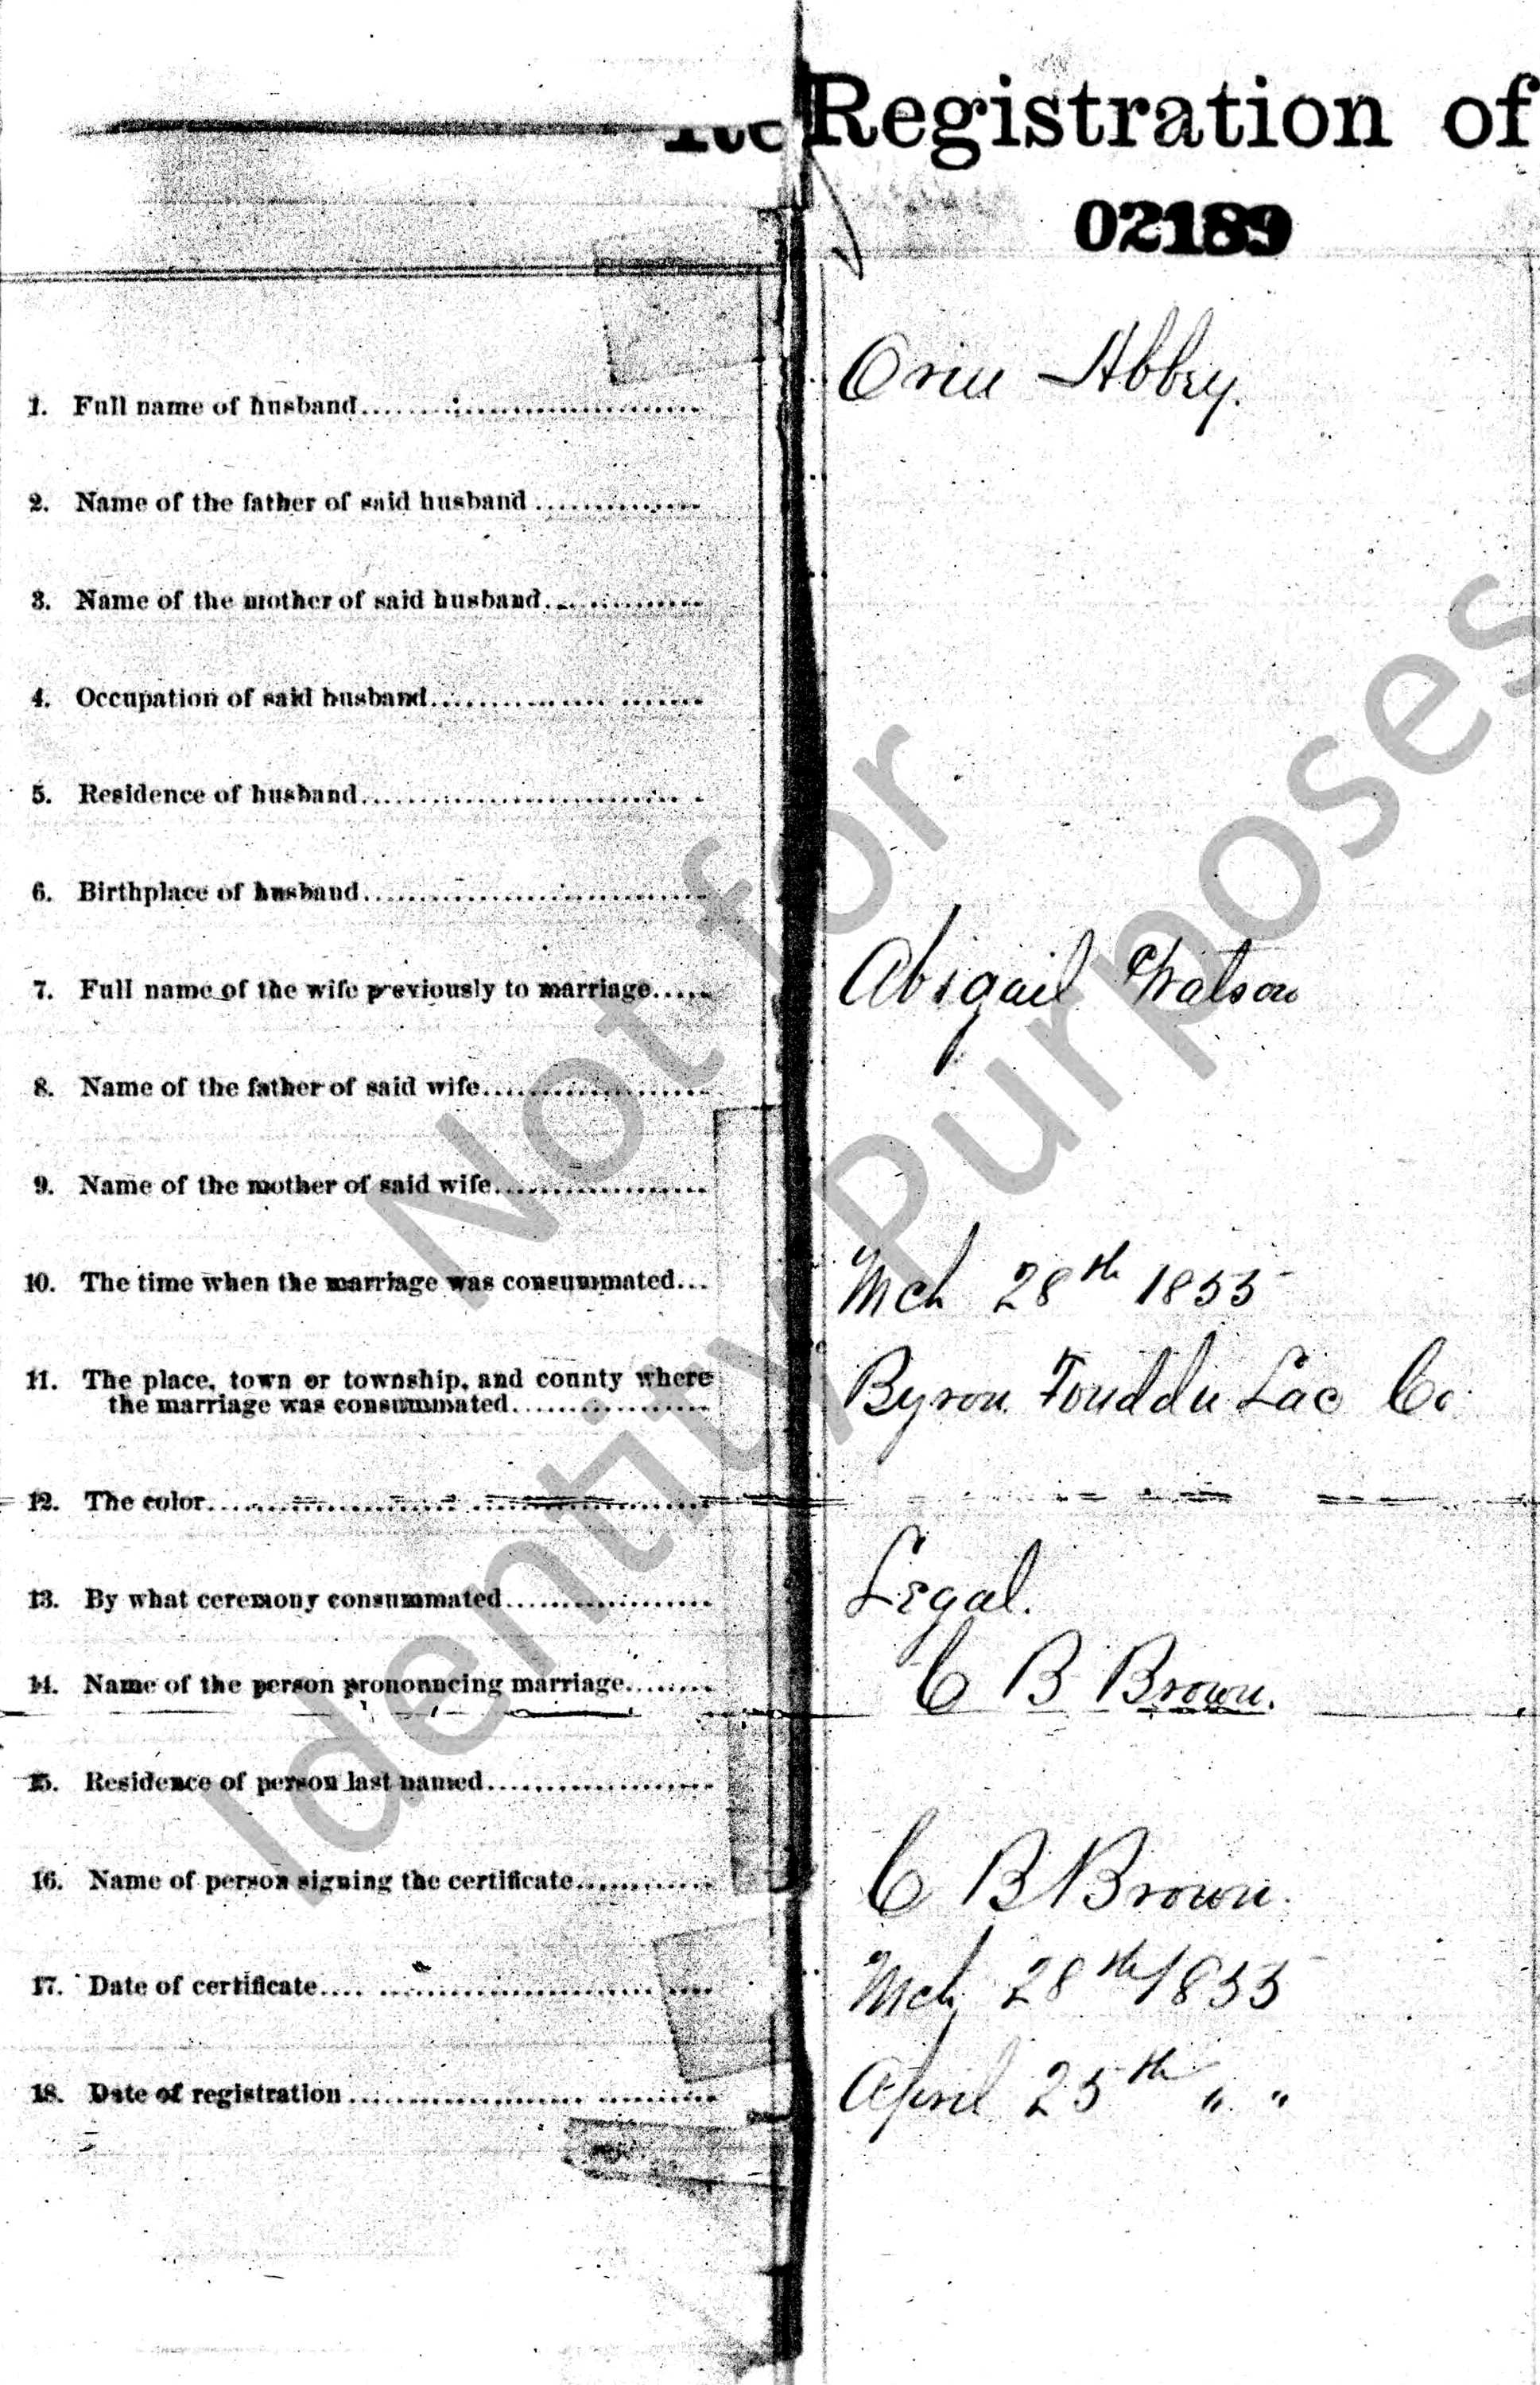 Registration of
02189
1. Full name of husband Orin Abbey.
2. Name of the father of said husband
3. Name of the mother of said husband
4. Occupation of said husband
5. Residence of husband
6. Birthplace of husband
7. Full name of the wife previously to marriage Abigail Watson
8. Name of the father of said wife
9. Name of the mother of said wife
10. The time when the marriage was consummated Mch 28th 1855
11. The place, town or township, and county where
the marriage was consummated Byron Fond du Lac Co
12. The color
13. By what ceremony consummated Legal.
14. Name of the person pronouncing marriage C B Brown.
15. Residence of person last named
16. Name of person signing the certificate C B Brown.
17. Date of certificate Mch 28th 1855
18. Date of registration April 25th " "
Not for
Identity Purposes